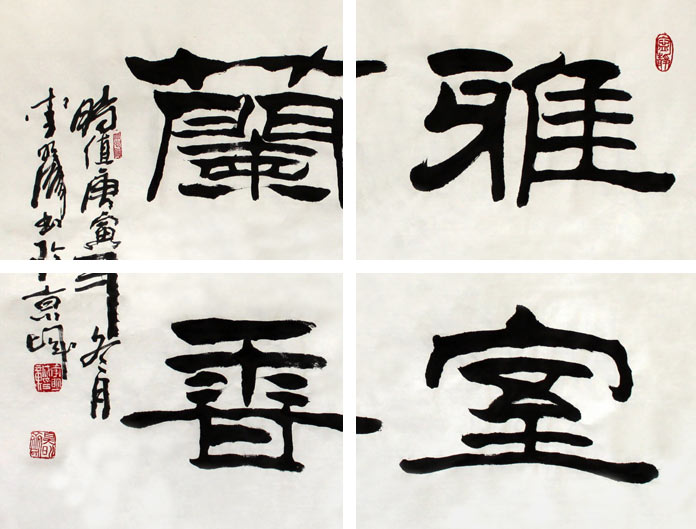 雅室
蘭香
時值庚寅年冬月
李書於京城